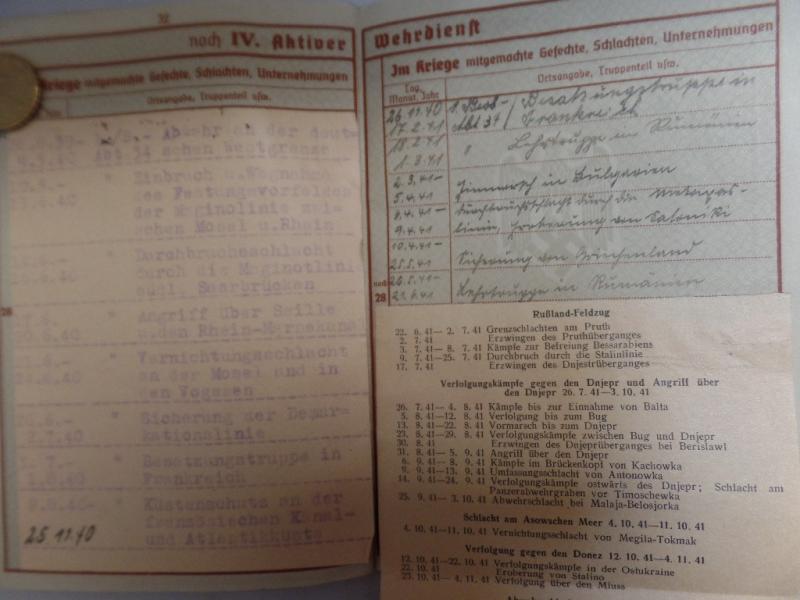 32
noch IV. Aktiver
Kriege mitgemachte Gefechte, Schlachten, Unternehmungen
Ortsangabe, Truppenteil usw.
Abwehr an der deut-
schen Westgrenze
" Einbruch u. Wegnahme
des Festungsvorfeldes
der Maginolinie zwi-
schen Mosel u. Rhein
Durchbruchsschlacht
durch die Maginotlinie
südl. Saarbrücken
" Angriff über Seille
u. den Rhein-Marnekanal
" Vernichtungsschlacht
an der Mosel und in
den Vogesen
" Sicherung der Demar-
kationalinie
" Besatzungstruppe in
Frankreich
Küstenschutz an der
französischen Kanal-
und Atlantikküste
25 11.40
28
Wehrdienst
Im Kriege mitgemachte Gefechte, Schlachten, Unternehmungen
Tag, Monat, Jahr
Ortsangabe, Truppenteil usw.
26.11.40 Besatzungstruppe in
17.2.41 Frankreich
18.2.41 " Lehrtruppe in Rumänien
1.3.41
2.3.41- Einmarsch in Bulgarien
5.4.41
6.4.41- Durchbruchsschlacht durch die Metaxas-
9.4.41 linie, Eroberung von Saloniki
10.4.41- Sicherung von Griechenland
25.5.41
26.5.41- Lehrtruppe in Rumänien
21.6.41
noch
28
Rußland-Feldzug
22. 6. 41— 2. 7. 41 Grenzschlachten am Pruth
2. 7. 41 Erzwingen des Pruthüberganges
3. 7. 41— 8. 7. 41 Kämpfe zur Befreiung Bessarabiens
9. 7. 41—25. 7. 41 Durchbruch durch die Stalinlinie
17. 7. 41 Erzwingen des Dnjestrüberganges
Verfolgungskämpfe gegen den Dnjepr und Angriff über
den Dnjepr 26. 7. 41—3. 10. 41
26. 7. 41— 4. 8. 41 Kämpfe bis zur Einnahme von Balta
5. 8. 41—12. 8. 41 Verfolgung bis zum Bug
13. 8. 41—22. 8. 41 Vormarsch bis zum Dnjepr
23. 8. 41—29. 8. 41 Verfolgungskämpfe zwischen Bug und Dnjepr
30. 8. 41 Erzwingen des Dnjeprüberganges bei Berislawl
31. 8. 41— 5. 9. 41 Angriff über den Dnjepr
6. 9. 41— 8. 9. 41 Kämpfe im Brückenkopf von Kachowka
9. 9. 41—13. 9. 41 Umfassungsschlacht von Antonowka
14. 9. 41—24. 9. 41 Verfolgungskämpfe ostwärts des Dnjepr; Schlacht am
Panzerabwehrgraben vor Timoschewka
25. 9. 41— 3. 10. 41 Abwehrschlacht bei Malaja-Belosjorka
Schlacht am Asowschen Meer 4. 10. 41—11. 10. 41
4. 10. 41—11. 10. 41 Vernichtungsschlacht von Megila-Tokmak
Verfolgung gegen den Donez 12. 10. 41—4. 11. 41
12. 10. 41—22. 10. 41 Verfolgungskämpfe in der Ostukraine
22. 10. 41 Eroberung von Stalino
23. 10. 41— 4. 11. 41 Verfolgung über den Miuss